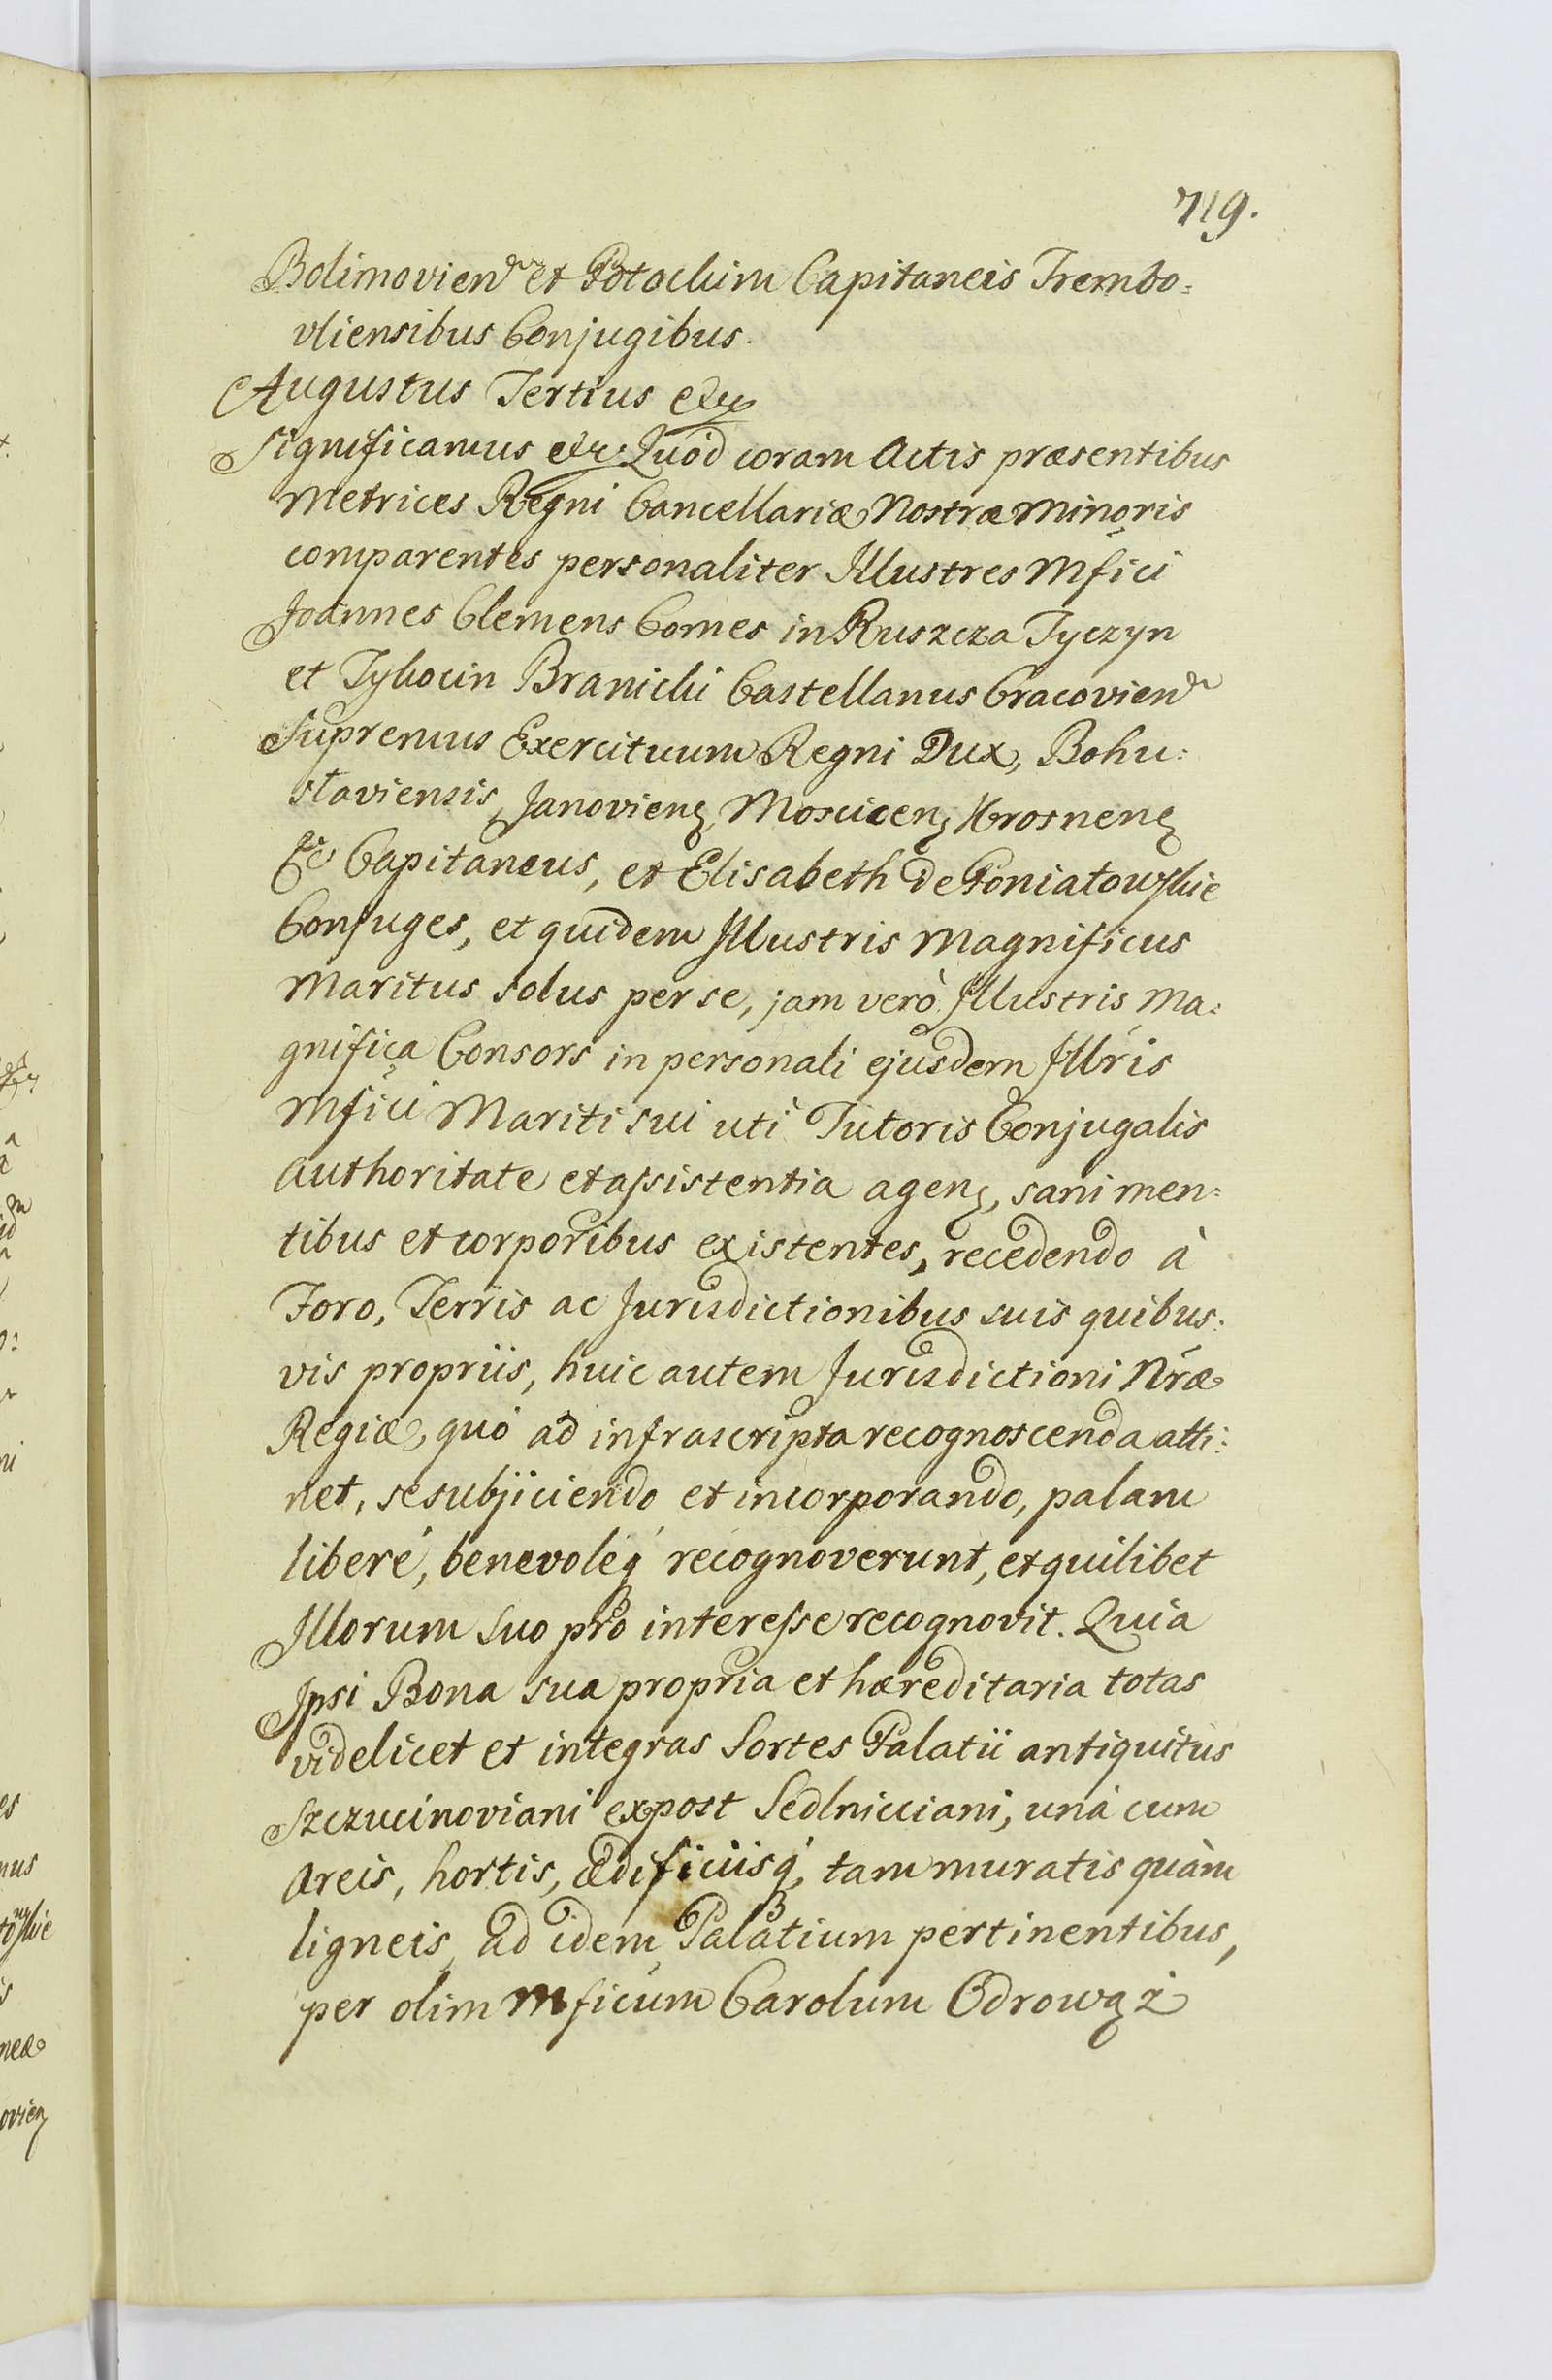 719.
Bolimovien et Potockim Capitaneis Trembo=
vliensibus Conjugibus.
Augustus Tertius etc
Significamus etc Quod coram Actis præsentibus
Metrices Regni Cancellariæ Nostræ Minoris
comparentes personaliter Illustres Mfici
Joannes Clemens Comes in Ruszcza Tyczyn
et Tykocin Branicki Castellanus Cracovien
Supremus Exercituum Regni Dux, Bohu=
slaviensis, Janovien, Moscicen, Krosnen
&c Capitaneus, et Elisabeth de Poniatowskie
Conjuges, et quidem Illustris Magnificus
Maritus solus per se, jam verò Illustris Ma=
gnifica Consors in personali ejusdem Illris
Mfici Mariti sui uti Tutoris Conjugalis
authoritate et assistentia agen, sani men=
tibus et corporibus existentes, recedendo à
Foro, Terris ac Jurisdictionibus suis quibus=
vis propriis, huic autem Jurisdictioni Nræ
Regiæ, quó ad infrascripta recognoscenda atti=
net, se subjiciendo et incorporando, palam
liberé, benevoleq́ recognoverunt, et quilibet
Illorum suo pro interesse recognovit. Quia
Ipsi Bona sua propria et hæreditaria totas
videlicet et integras Sortes Palatii antiquitus
Szczucinoviani expost Sedlnicciani, uná cum
Areis, hortis, ædificiisq́, tam muratis quàm
ligneis, ad idem Palatium pertinentibus,
per olim Mficum Carolum Odrowąż